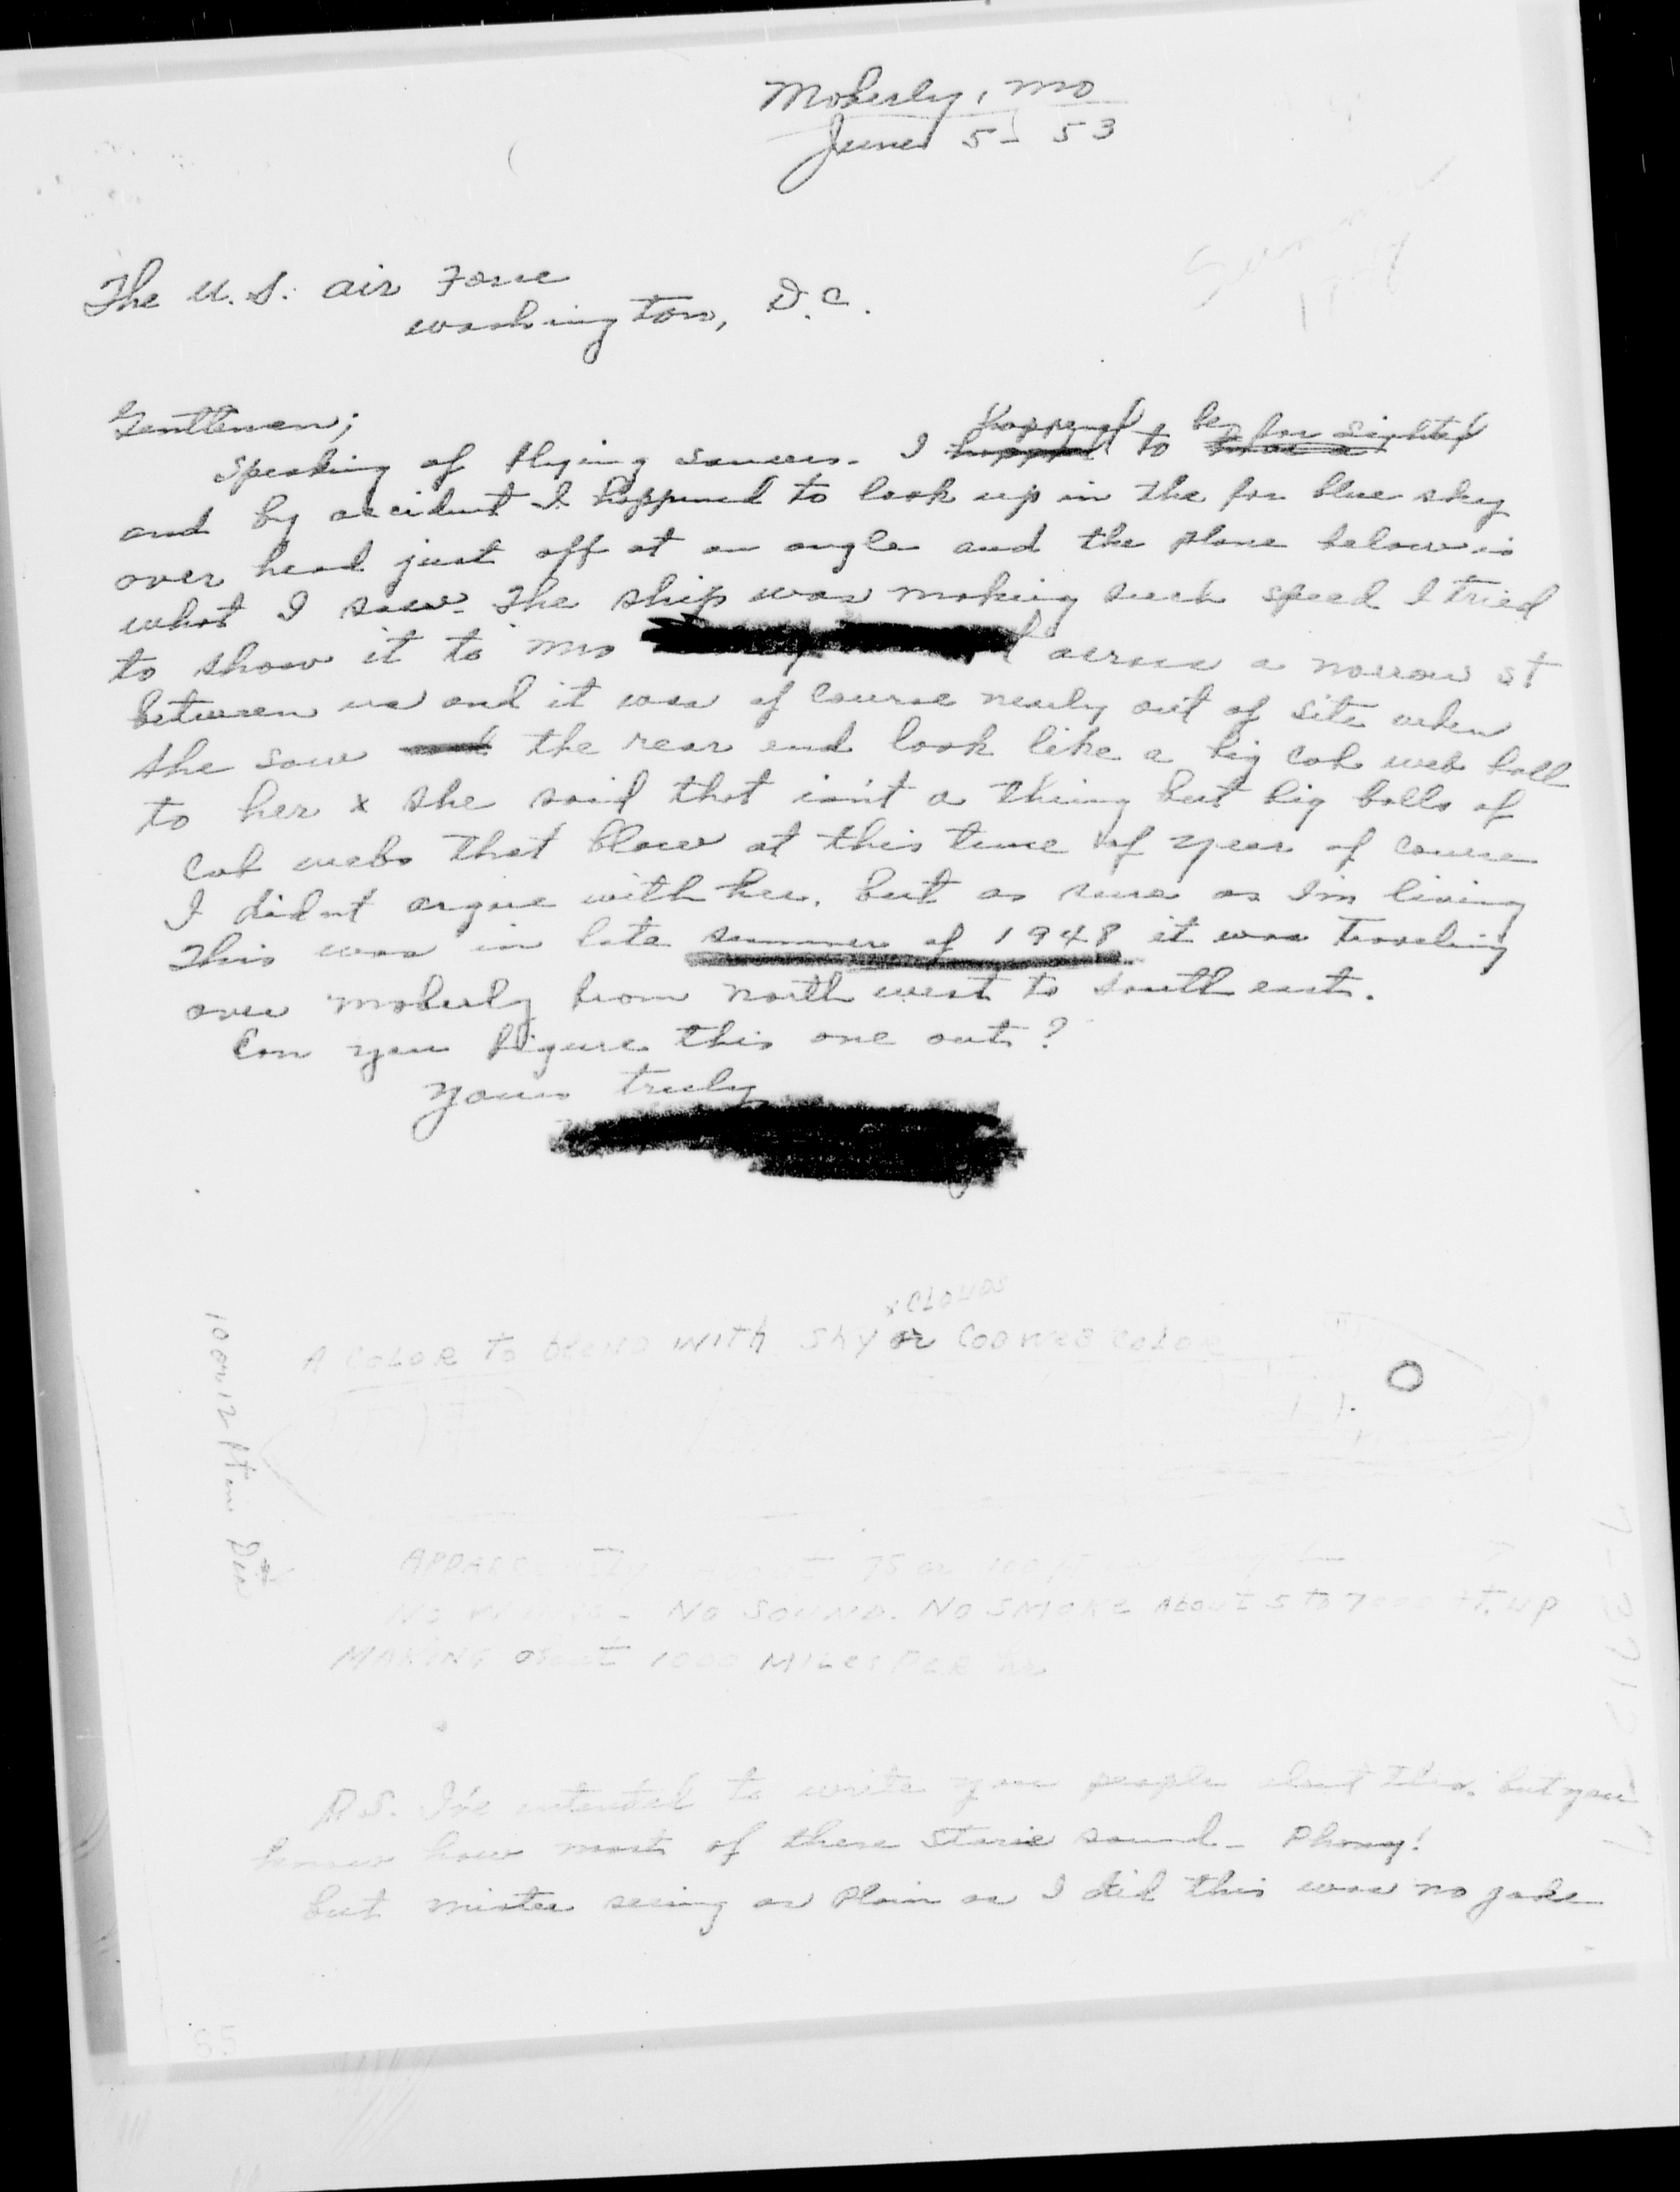 Moberly, Mo
June 5 - 53
Summer
1948
The U.S. Air Force
Washington, D.C.
Gentlemen;
Speaking of flying saucers. I happened to be far sighted
and by accident I happened to look up in the far blue sky
over head just off at an angle and the plane below is
what I saw. The ship was making such speed I tried
to show it to Mrs across a narrow st
between us and it was of course nearly out of site when
she saw the rear end look like a big cob web ball
to her x she said that isn't a thing but big balls of
cob webs that blow at this time of year of course
I didnt argue with her. but as sure as Im living
This was in late summer of 1948 it was traveling
over Moberly from north west to south east.
Can you figure this one out?
Yours truly
x CLOUDS
A COLOR TO BLEND WITH SKY OR COB WEB COLOR
10 or 12 ft in Dia
APPARENTLY about 75 or 100 ft in length
NO WINGS - NO SOUND. NO SMOKE ABOUT 5 TO 7000 FT. UP
MAKING about 1000 MILES PER hr
P.S. I've intended to write you people about this. but you
know how most of these storie sound - Phony!
but mister seeing as plain as I did this was no joke